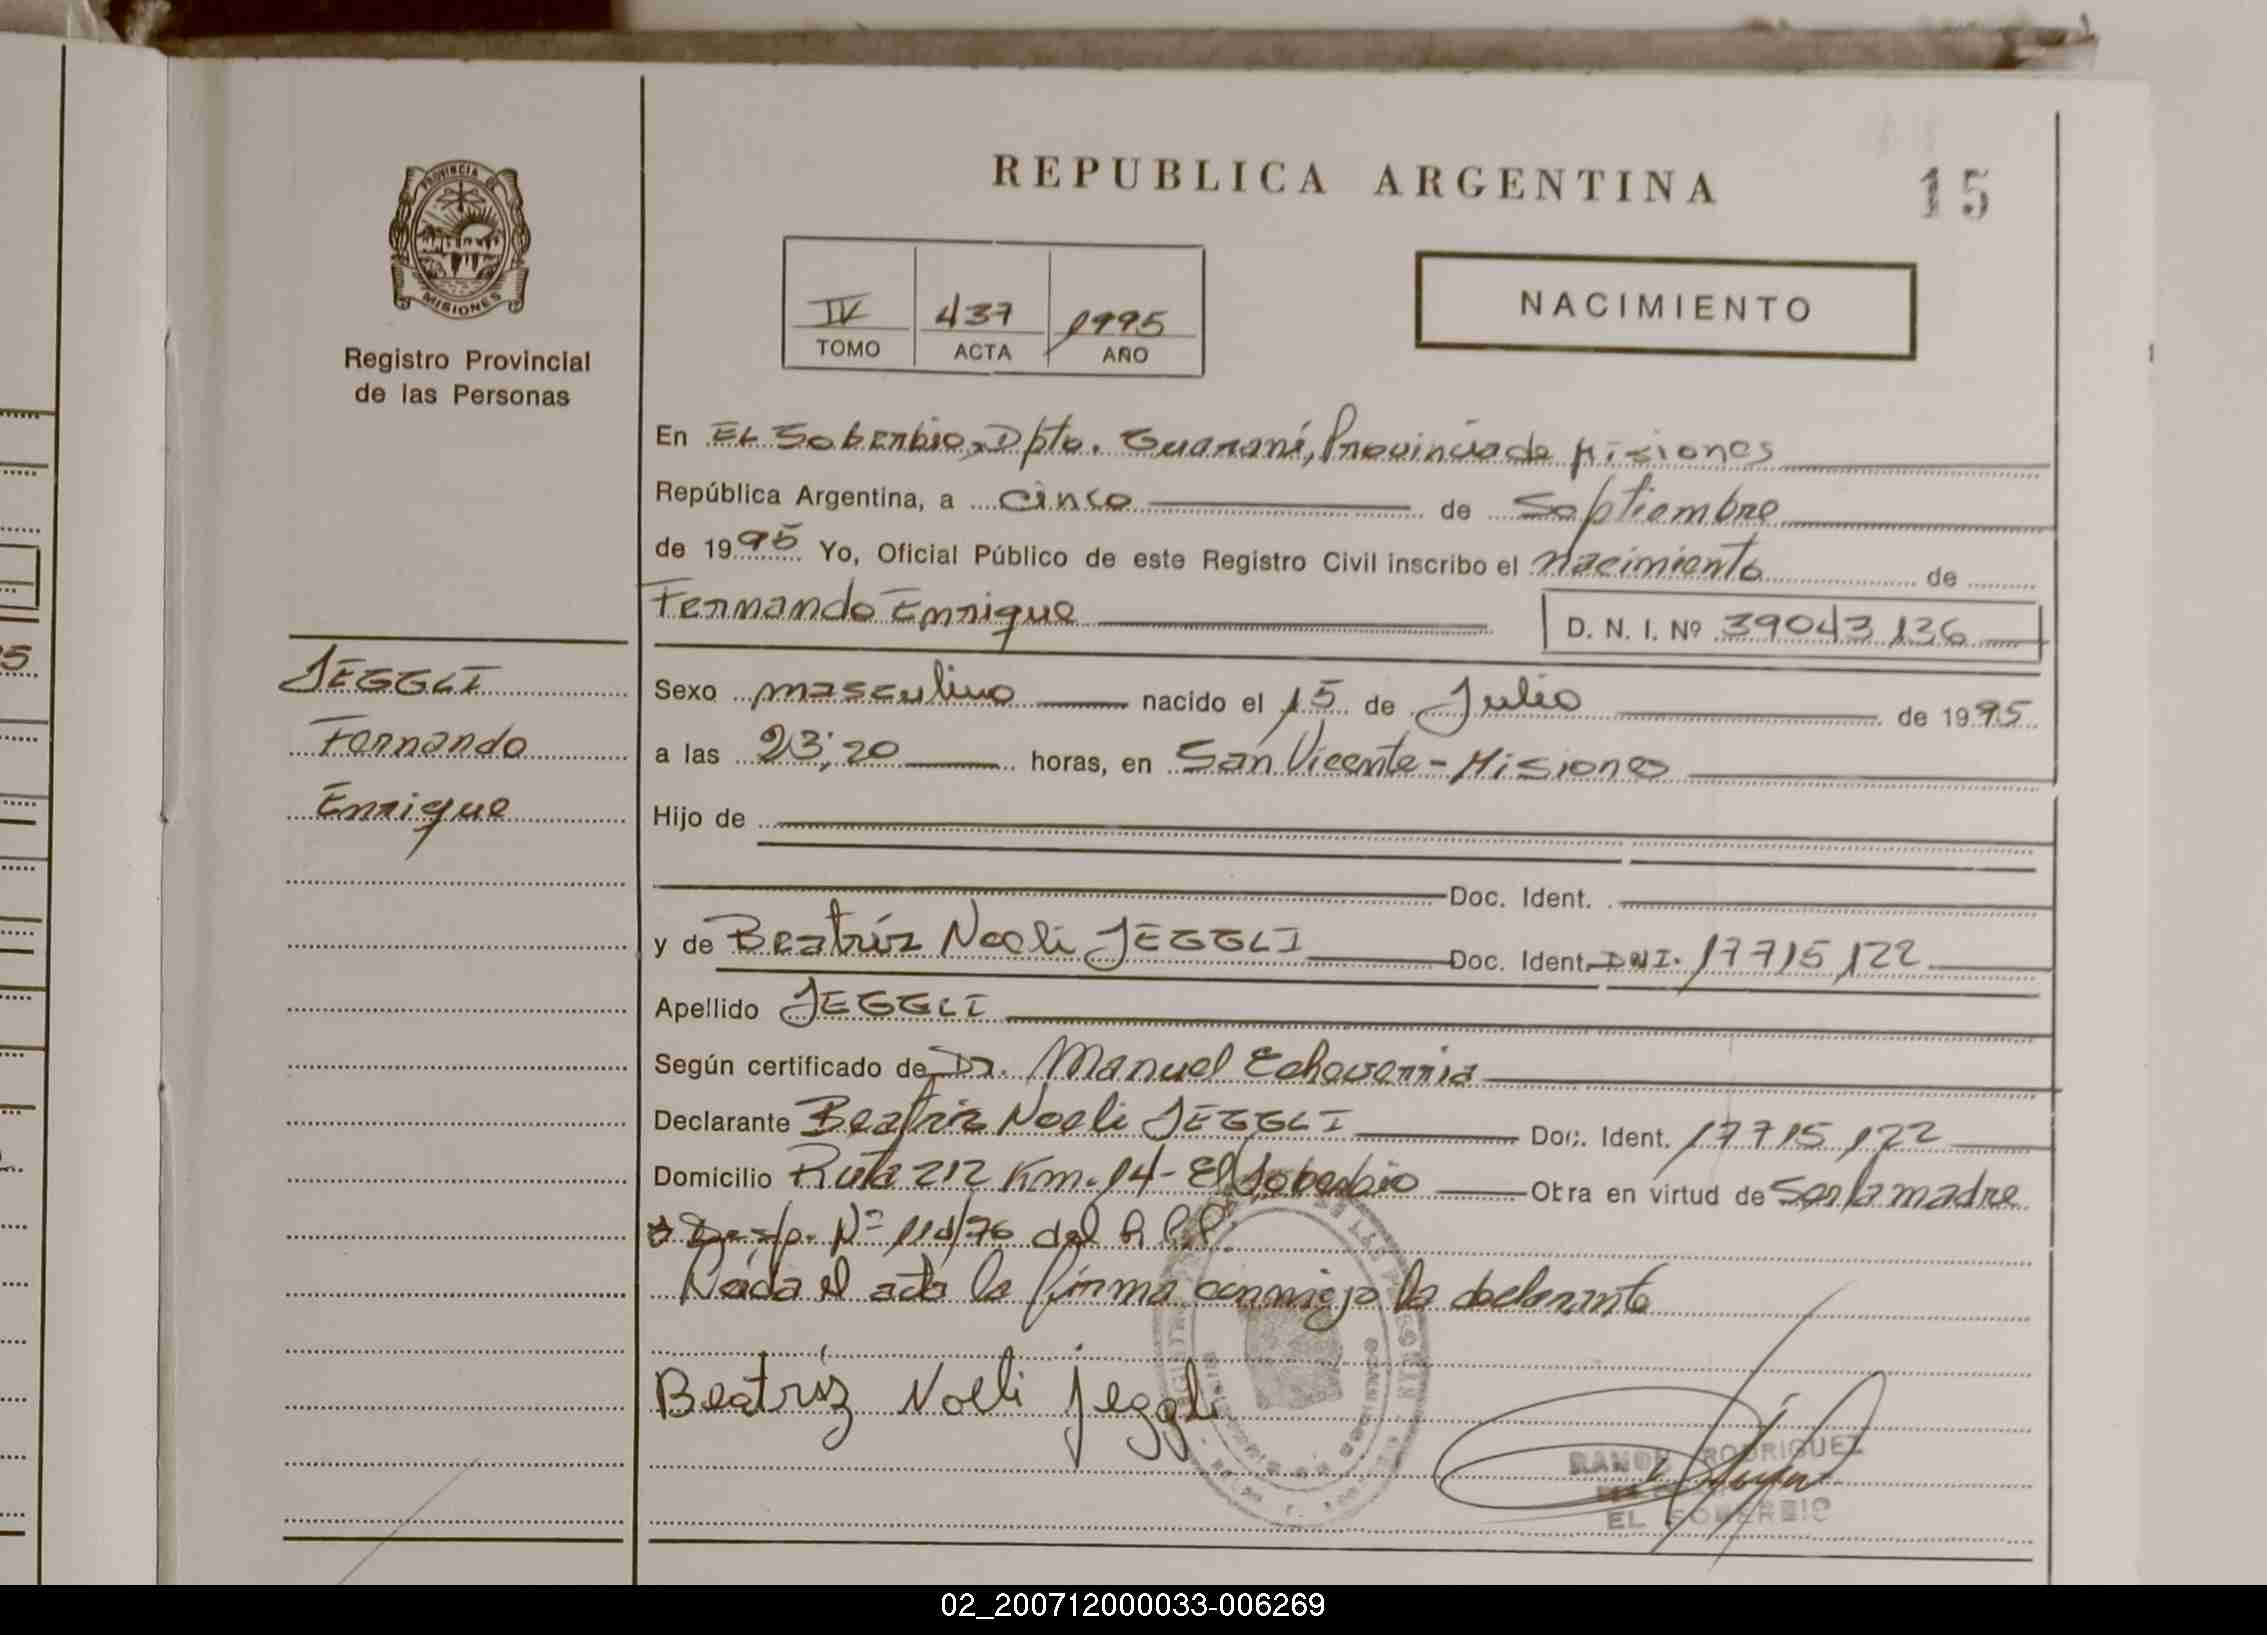 REPUBLICA ARGENTINA
15
PROVINCIA DE
MISIONES
Registro Provincial
de las Personas
IV 437 1995
TOMO ACTA AÑO
NACIMIENTO
En El Soberbio, Dpto. Guaraní, Provincia de Misiones
República Argentina, a cinco de Septiembre
de 1995 Yo, Oficial Público de este Registro Civil inscribo el nacimiento de
Fernando Enrique D. N. I. Nº 39043136
JEGGLI
Fernando
Enrique
Sexo masculino nacido el 15 de Julio de 1995
a las 23:20 horas, en San Vicente - Misiones
Hijo de
Doc. Ident.
y de Beatríz Noeli JEGGLI Doc. Ident. DNI. 17715122
Apellido JEGGLI
Según certificado de Dr. Manuel Echeverria
Declarante Beatriz Noeli JEGGLI Doc. Ident. 17715122
Domicilio Ruta 212 Km. 14 - El Soberbio Obra en virtud de Ser la madre
Desp. Nº 114/76 del R.P.P.
Leída el acta la firma conmigo la declarante
Beatríz Noeli Jeggli
RAMON RODRIGUEZ
EL SOBERBIO
02_200712000033-006269